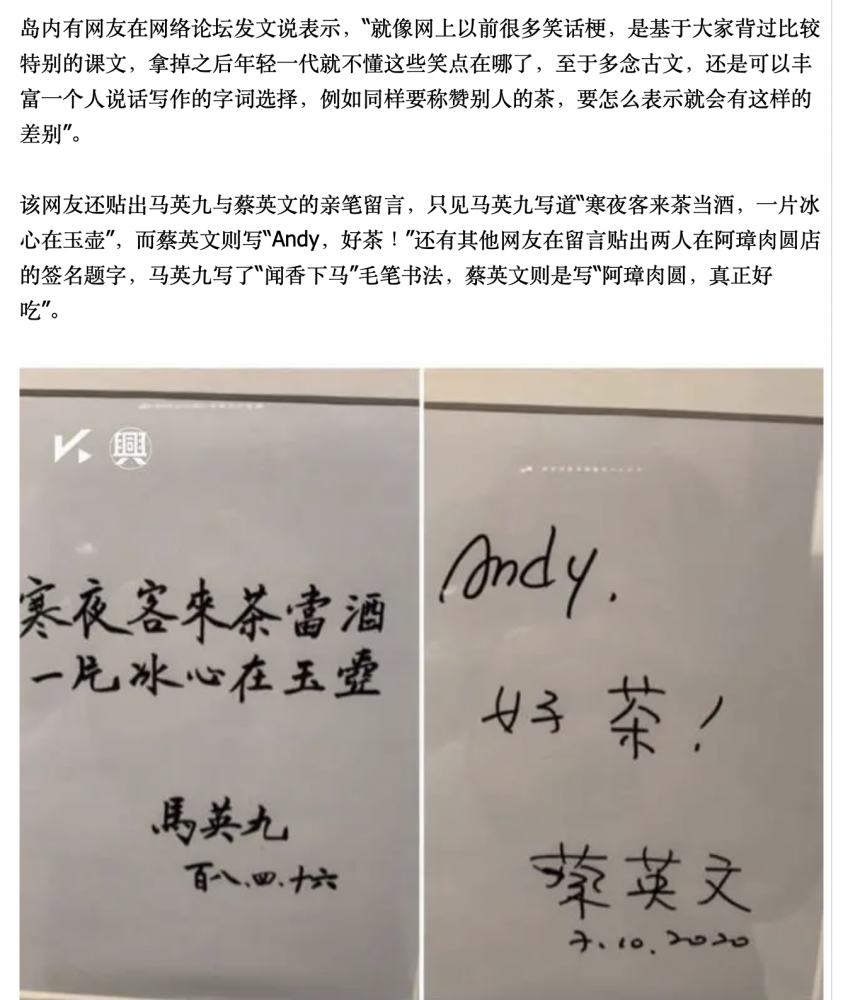 岛内有网友在网络论坛发文说表示，“就像网上以前很多笑话梗，是基于大家背过比较
特别的课文，拿掉之后年轻一代就不懂这些笑点在哪了，至于多念古文，还是可以丰
富一个人说话写作的字词选择，例如同样要称赞别人的茶，要怎么表示就会有这样的
差别”。
该网友还贴出马英九与蔡英文的亲笔留言，只见马英九写道“寒夜客来茶当酒，一片冰
心在玉壶”，而蔡英文则写“Andy，好茶！”还有其他网友在留言贴出两人在阿璋肉圆店
的签名题字，马英九写了“闻香下马”毛笔书法，蔡英文则是写“阿璋肉圆，真正好
吃”。
興
寒夜客來茶當酒
一片冰心在玉壺
馬英九
百八.四.十六
Andy.
好茶！
蔡英文
7.10.2020